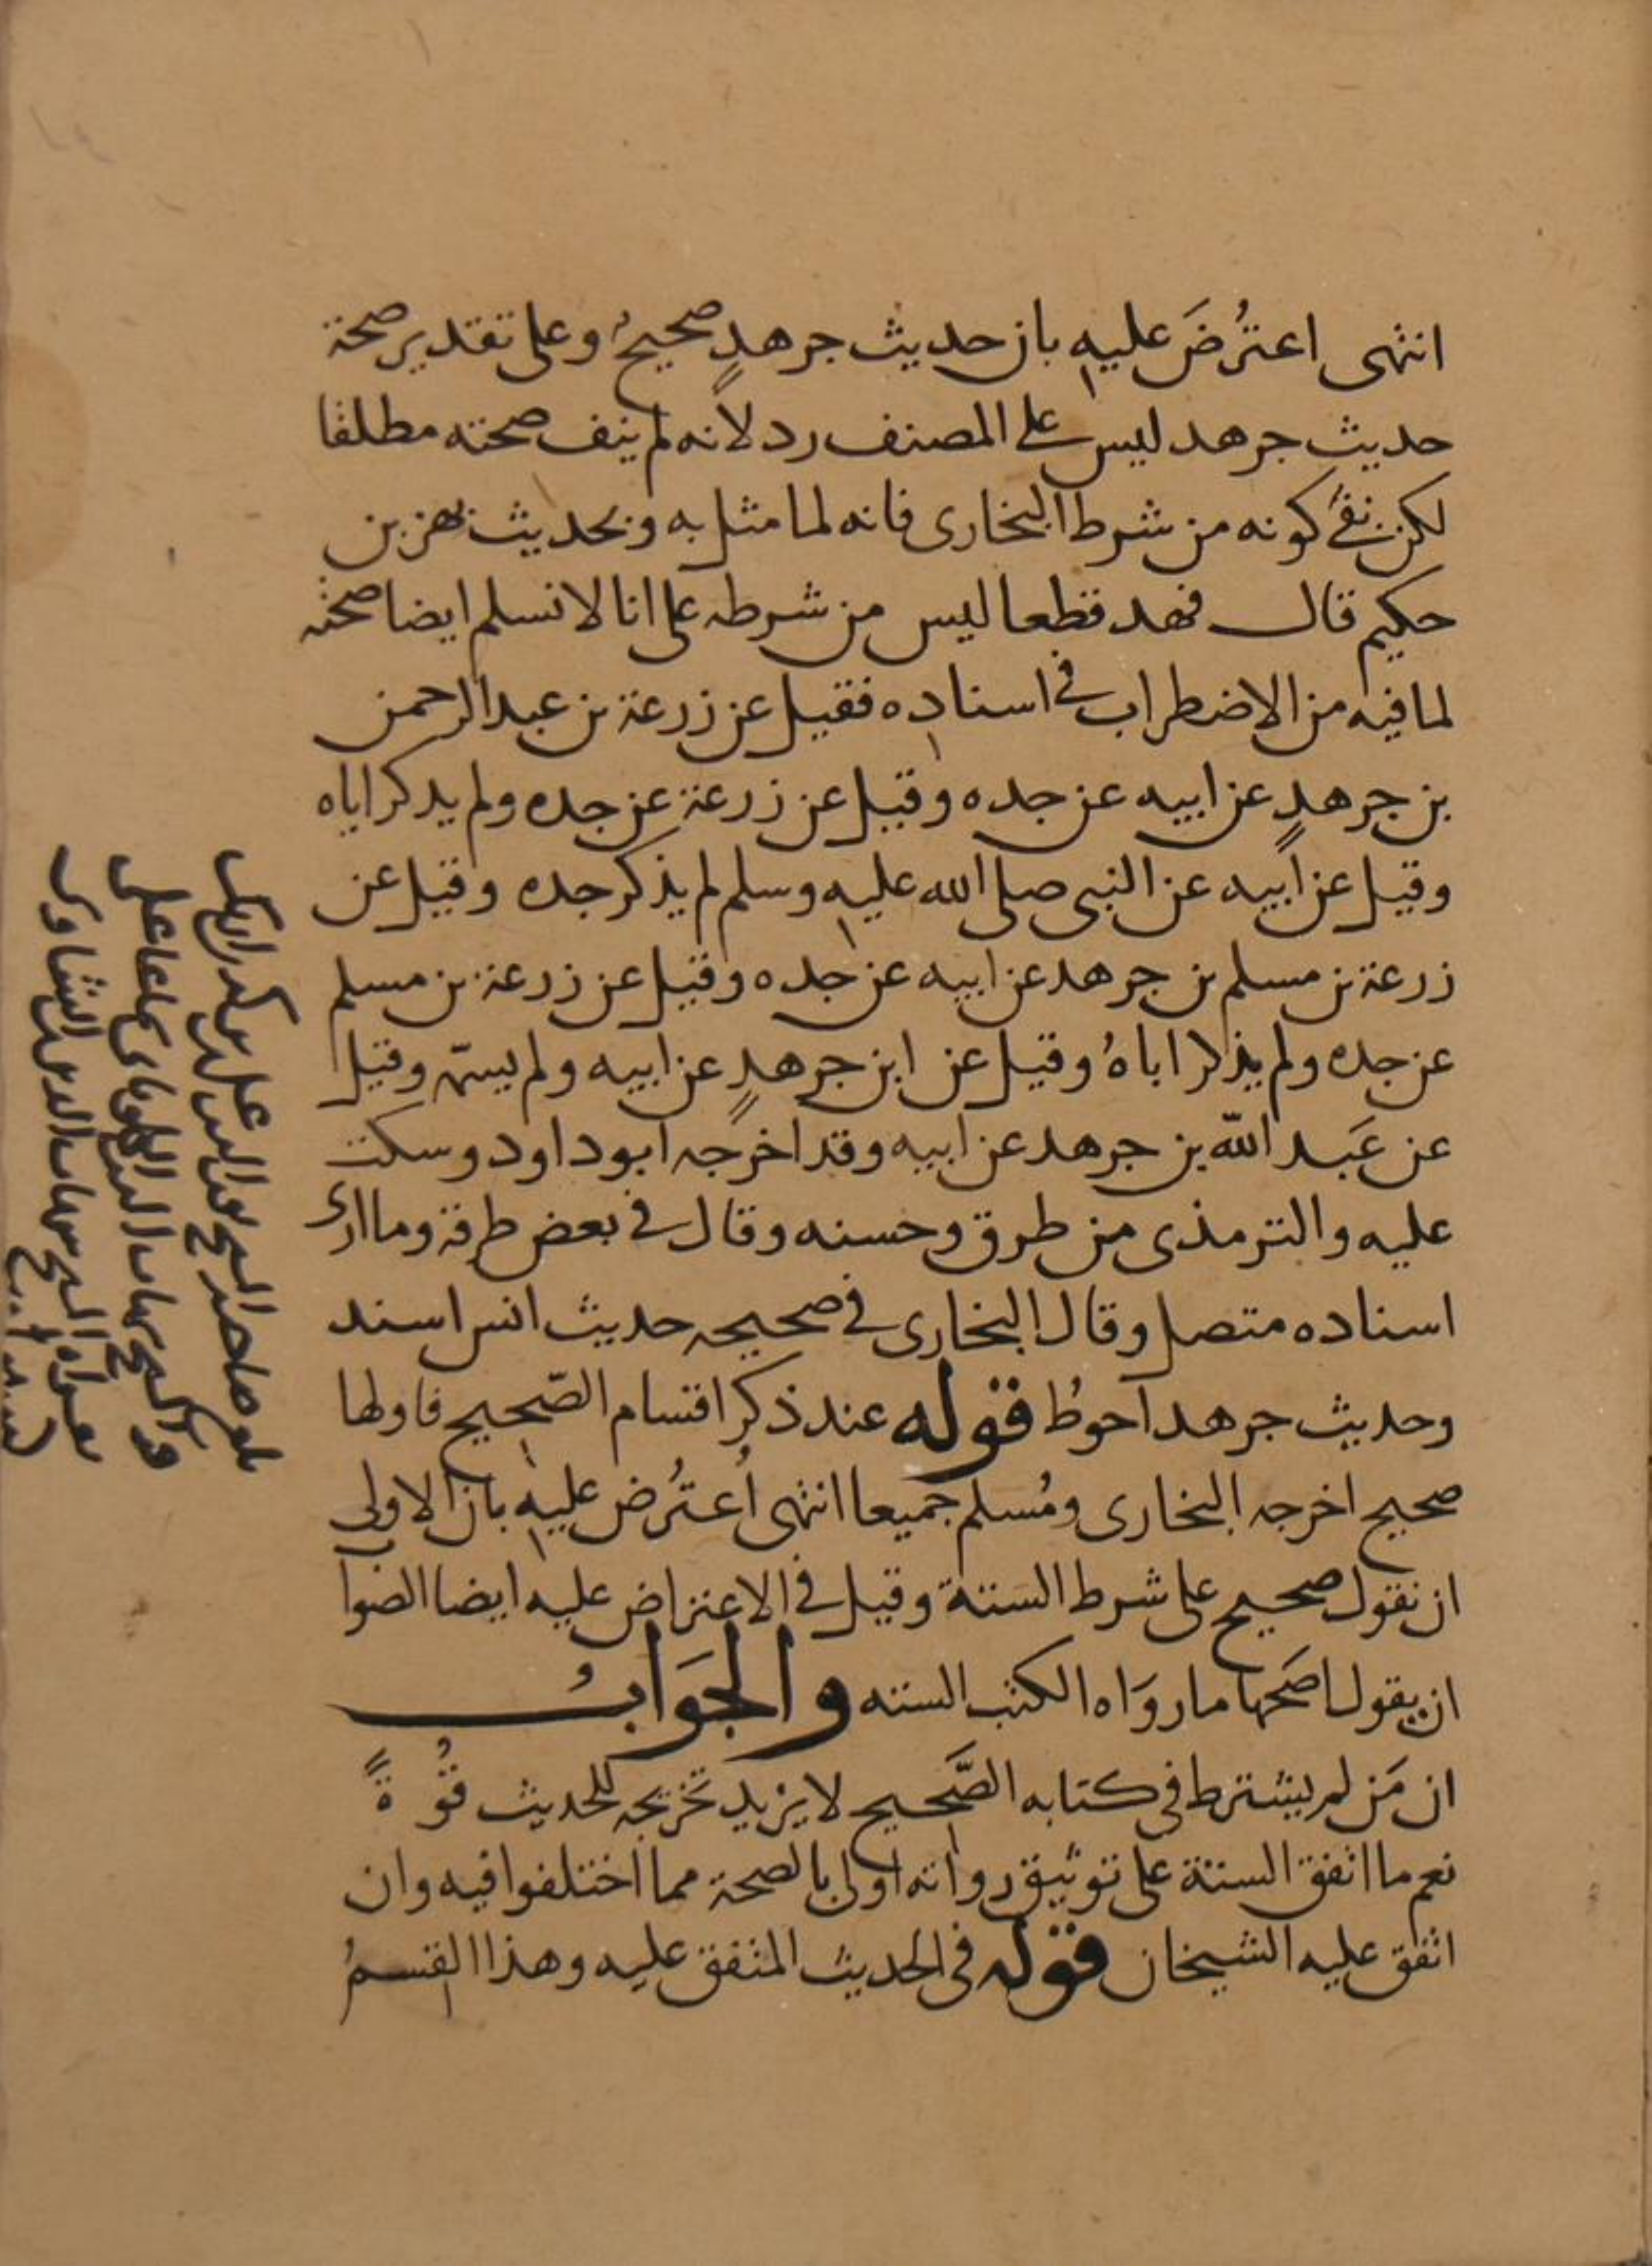 انتهى اعتُرضَ عليه بان حديث جرهدٍ صحيحُ وعلى تقدير صحة
حديث جرهد ليس على المصنف رد لانه لم ينف صحته مطلقا
لكن نفى كونه من شرط البخارى فانه لما مثل به وبحديث بهز بن
حكيم قال فهد قطعا ليس من شرطه على انا لا نسلم ايضا صحته
لما فيه من الاضطراب في اسناده فقيل عن زرعة بن عبد الرحمن
بن جرهدٍ عن ابيه عن جده وقيل عن زرعة عن جده ولم يدكر اباه
وقيل عن ابيه عن النبى صلى الله عليه وسلم لم يذكر جده وقيل عن
زرعة بن مسلم بن جرهد عن ابيه عن جده وقيل عن زرعة بن مسلم
عن جده ولم يذكر اباهُ وقيل عن ابن جرهدٍ عن ابيه ولم يسمّه وقيل
عن عَبد اللّه بن جرهد عن ابيه وقد اخرجه ابو داود وسكت
عليه والترمذى من طرق وحسنه وقال في بعض طرقه وما ارى
اسناده متصل وقال البخارى في صحيحه حديث انس اسند
وحديث جرهد احوطُ قوله عند ذكر اقسام الصّحيح فاولها
صحيح اخرجه البخارى ومُسلم جميعا انتهى اُعترُض عليه بان الاولى
ان نقول صحيح على شرط الستة وقيل في الاعتراض عليه ايضا الصوا
ان يقول اصَحها ما روَاه الكتب الستة والجوَابُ
ان مَن لم يشترط في كتابه الصَّحيح لا يزيد تخرَيجه للحديث قُوةً
نعم ما اتفق الستة على توثيق رواته اولى بالصحة مما اختلفوا فيه وان
اتفق عليه الشيخان قوله في الحديث المتفق عليه وهذا القسمُ